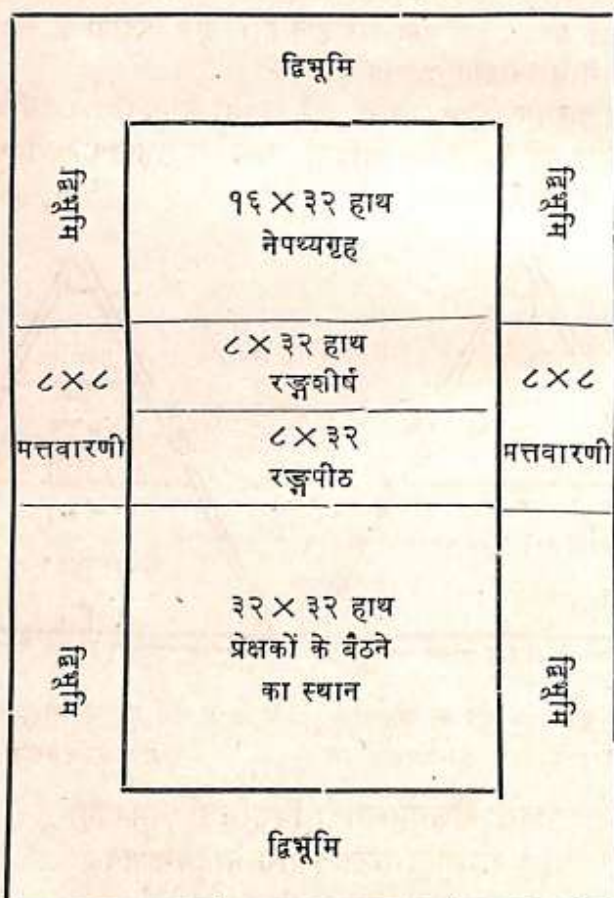 द्विभूमि
द्विभूमि
१६ × ३२ हाथ
नेपथ्यगृह
द्विभूमि
८ × ८
मत्तवारणी
८ × ३२ हाथ
रङ्गशीर्ष
८ × ३२
रङ्गपीठ
८ × ८
मत्तवारणी
द्विभूमि
३२ × ३२ हाथ
प्रेक्षकों के बैठने
का स्थान
द्विभूमि
द्विभूमि